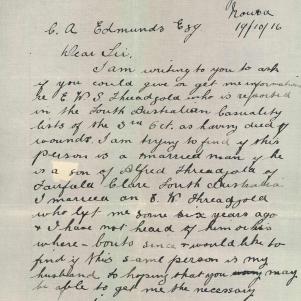 Nowra
19/10/16
C. A Edmunds Esq
Dear Sir.
I am writing to you to ask
if you could give or get me information
re E W S Threadgold who is reported
in the South Australian Casualty
lists of the 3rd Oct. as having died of
wounds. I am trying to find if this
person is a married man & if he
is a son of Alfred Threadgold of
Fairfield Clare South Australia
I married an E. W Threadgold
who left me some six years ago
& I have not heard of him or his
where-bouts since & would like to
find if this same person is my
husband & hoping that you may
be able to get me the necessary